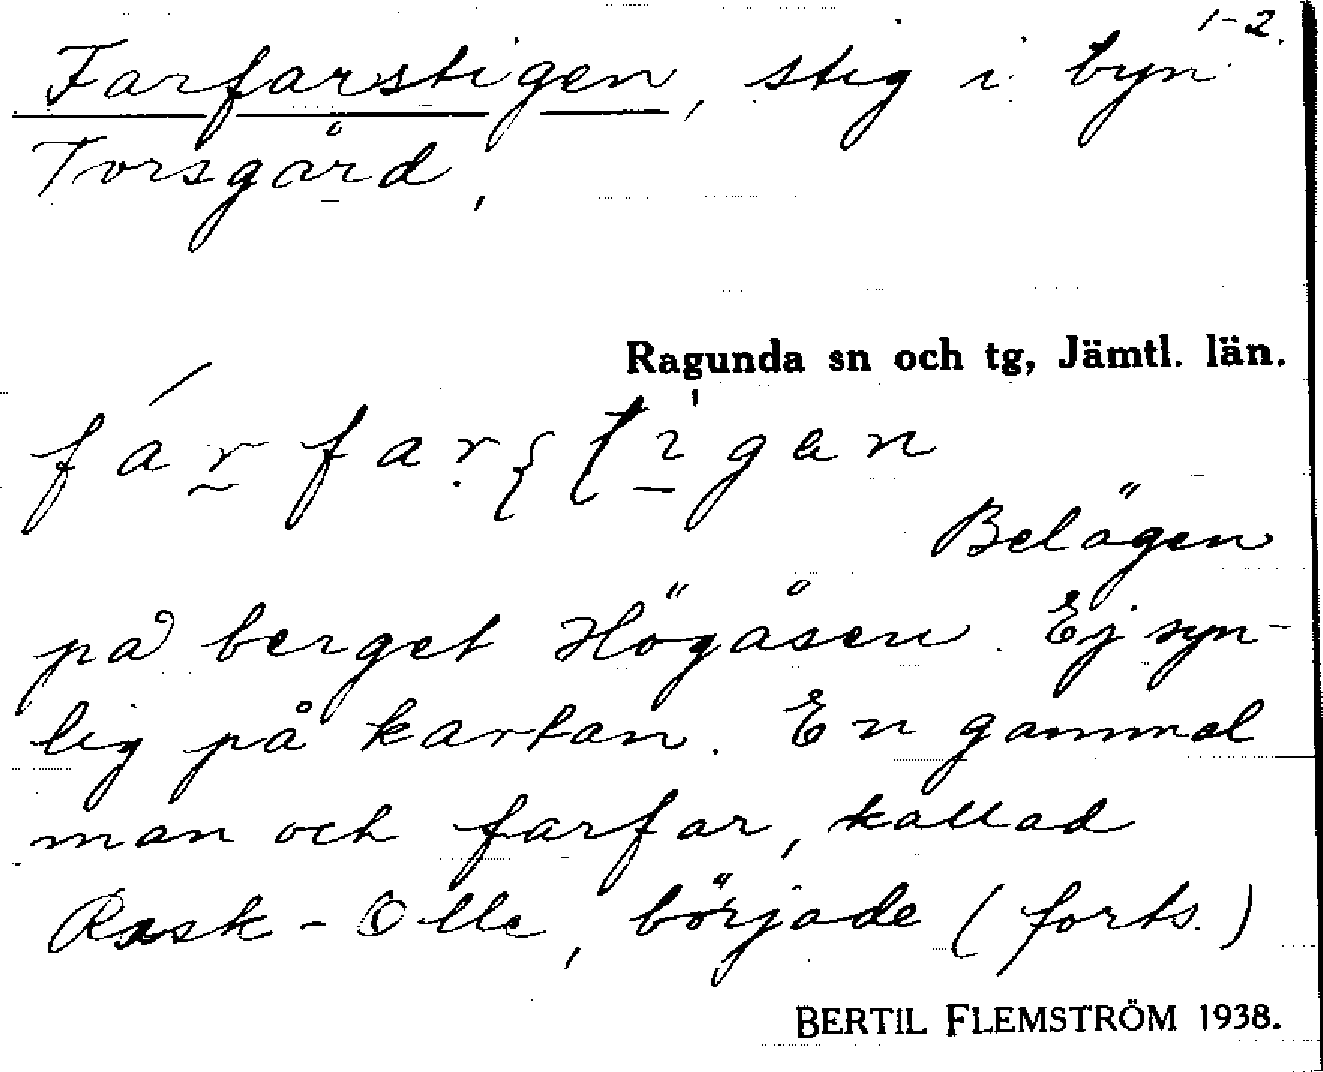 1-2.
Farfarstigen, stig i byn
Torsgård,
Ragunda sn och tg, Jämtl. län.
fárfarstigan
Belägen
på berget Högåsen. Ej syn-
lig på kartan. En gammal
man och farfar, kallad
Rask-Olle, började (forts.)
BERTIL FLEMSTRÖM 1938.